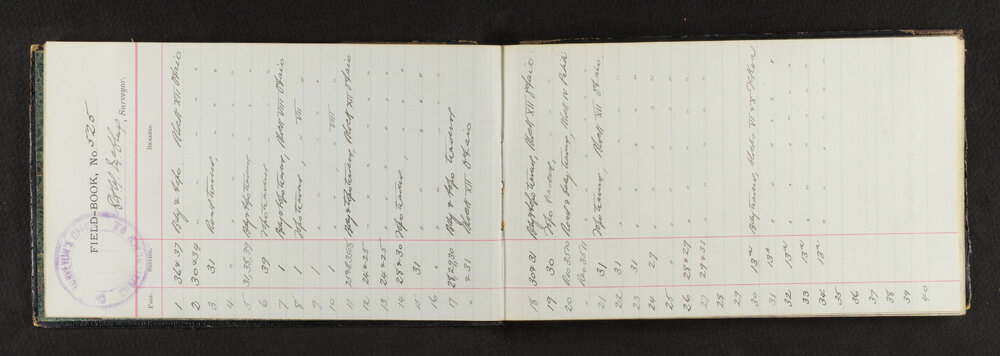 FIELD-BOOK, No. 525
Surveyor.
Page. Section. Remarks.
1 36 & 37 Bdy & Topo Block XII Otaio
2 30 & 34 " " "
3 31 Road traverse, " "
4 " " "
5 31,38,39 Bdy & Topo traverse " "
6 39 Topo traverse " "
7 1 Bdy & Topo traverse, Block VIII Otaio
8 1 Topo traverse, " "
9 1 " " "
10 1 " " VIII "
11 Bdy & Topo traverse, Block XII Otaio
12 24 & 25 " " "
13 24 & 25 " " "
14 28 & 30 Topo traverse, " "
15 31 " " "
16 " " " "
17 28,29,30 Bdy & Topo traverse
" & 31 Block XII Otaio
18 30 & 31 Bdy & Topo traverse, Block XII Otaio
19 30 Topo traverse, " "
20 Res 3510 Road & Bdy traverse, Block IV
Res 3511
21 31 Topo traverse, Block XII Otaio
22 31 " " "
23 31 " " "
24 29 " " "
25 " " " "
26 28 & 29 " " "
27 29 & 31 " " "
28
29
30 13 Bdy traverse, Blocks VI & X
31 13 " " "
32 13 " " "
33 13 " " "
34 13 " " "
35
36
37
38
39
40